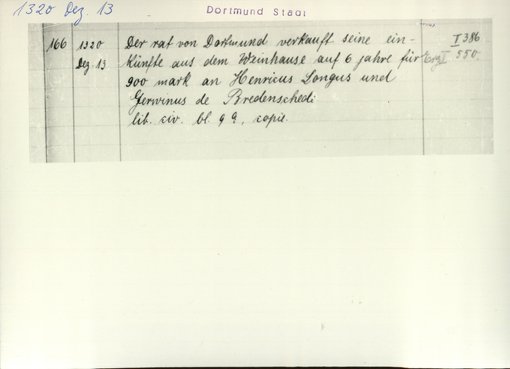 1320 Dez. 13
Dortmund Stadt
166 1320 Der rat von Dortmund verkauft seine ein- I 386
Dez. 13 künfte aus dem Weinhause auf 6 jahre für Erg I 550.
900 mark an Henricus Longus und
Gerwinus de Bredenschedi
lib. civ. bl. 99, copie.